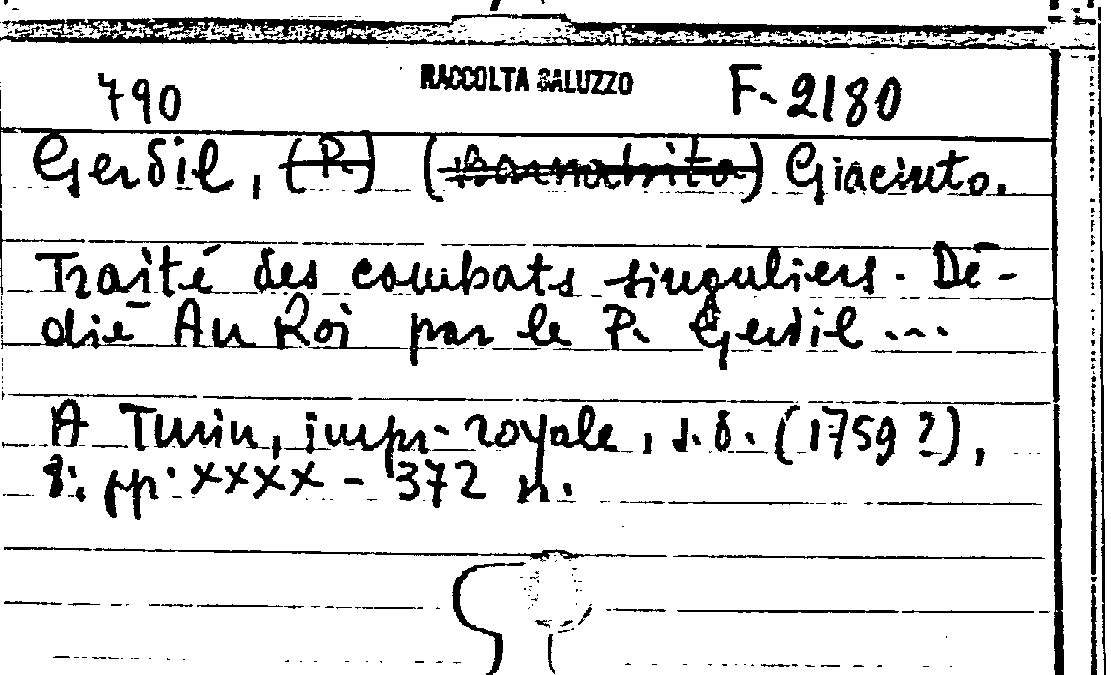 790 RACCOLTA SALUZZO F-2180
Gerdil, (P.) (Barnabita) Giacinto.
Traité des combats singuliers. Dé-
dié Au Roi par le P. Gerdil ...
A Turin, impr. royale, s.d. (1759?),
8: pp. XXXX - 372 n.